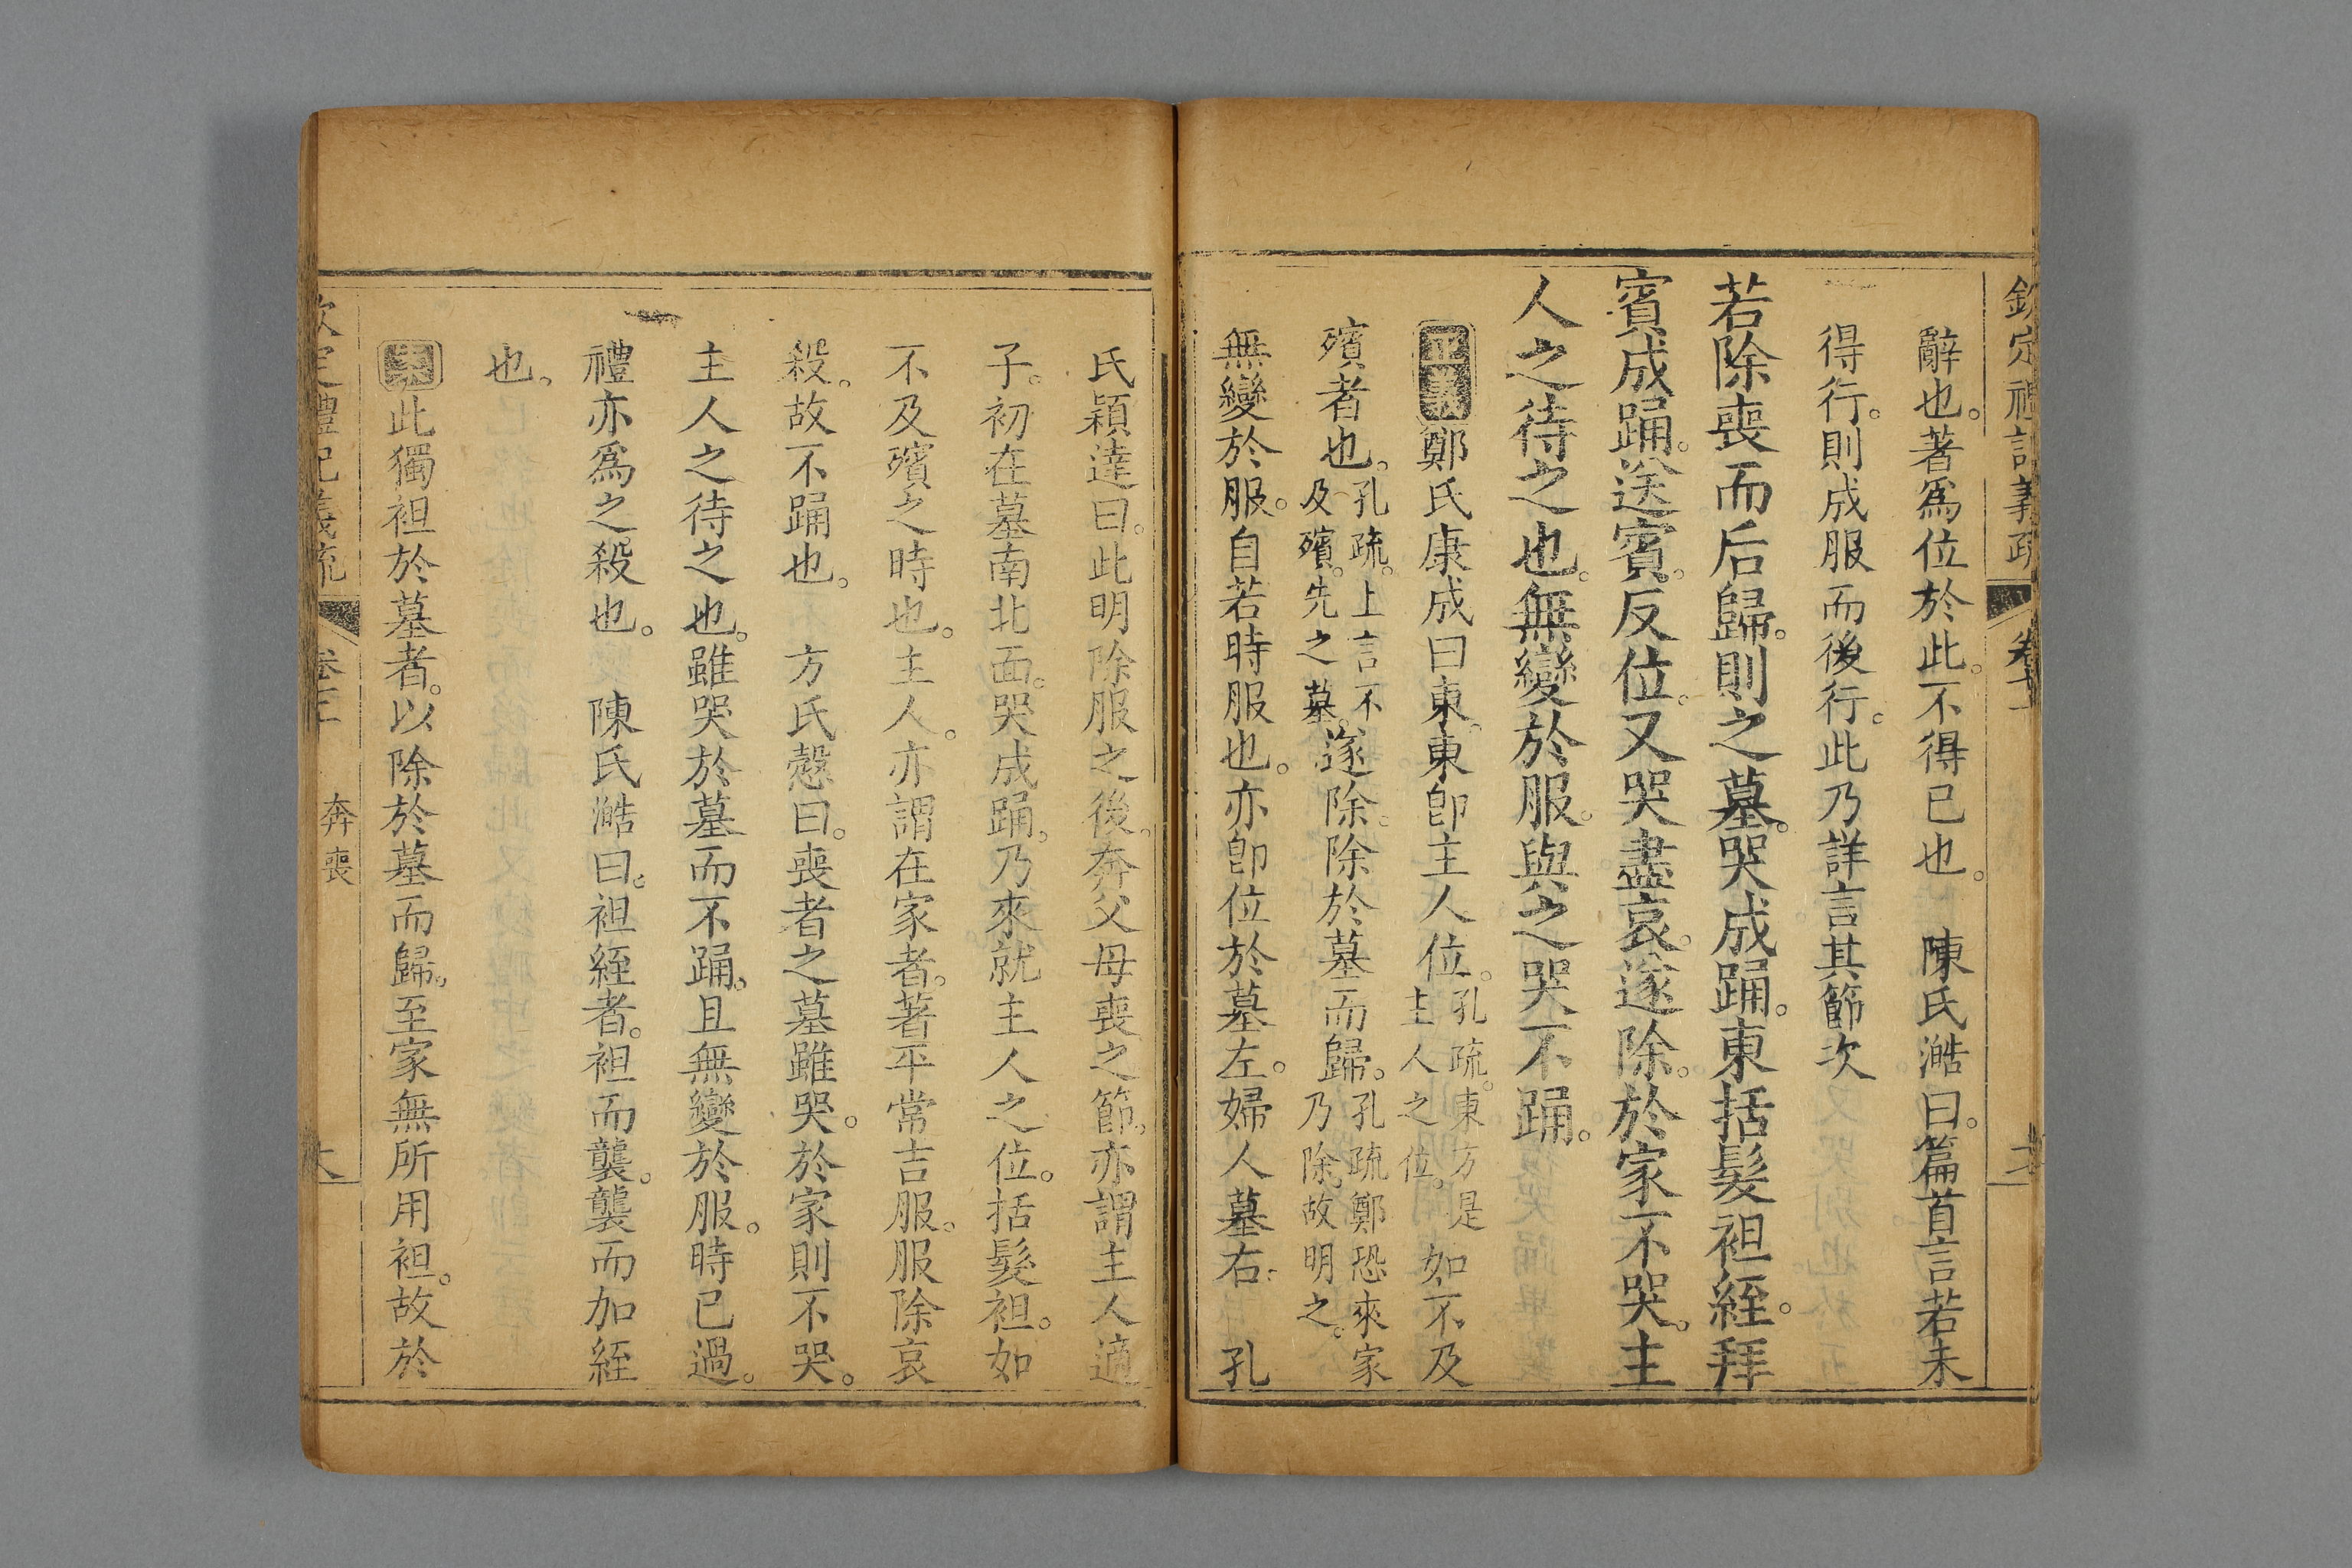 辭也。著爲位於此。不得已也。 陳氏澔曰。篇首言若未
得行。則成服而後行。此乃詳言其節次
若除喪而后歸。則之墓。哭成踊。東括髮袒絰。拜
賓成踊。送賓。反位。又哭盡哀。遂除。於家不哭。主
人之待之也。無變於服。與之哭不踊。
正義 鄭氏康成曰東。東卽主人位。孔疏。東方是主人之位。如不及
殯者也。孔疏。上言不及殯。先之墓。遂除。除於墓而歸。孔疏鄭恐來家乃除。故明之。
無變於服。自若時服也。亦卽位於墓左。婦人墓右。 孔
氏穎達曰。此明除服之後。奔父母喪之節。亦謂主人適
子。初在墓南北面。哭成踊。乃來就主人之位。括髮袒。如
不及殯之時也。主人。亦謂在家者。著平常吉服。服除哀
殺。故不踊也。 方氏慤曰。喪者之墓雖哭。於家則不哭。
主人之待之也。雖哭於墓而不踊。且無變於服。時已過。
禮亦爲之殺也。 陳氏澔曰。袒絰者。袒而襲。襲而加絰
也。
此獨袒於墓者。以除於墓而歸。至家無所用袒。故於
奔喪